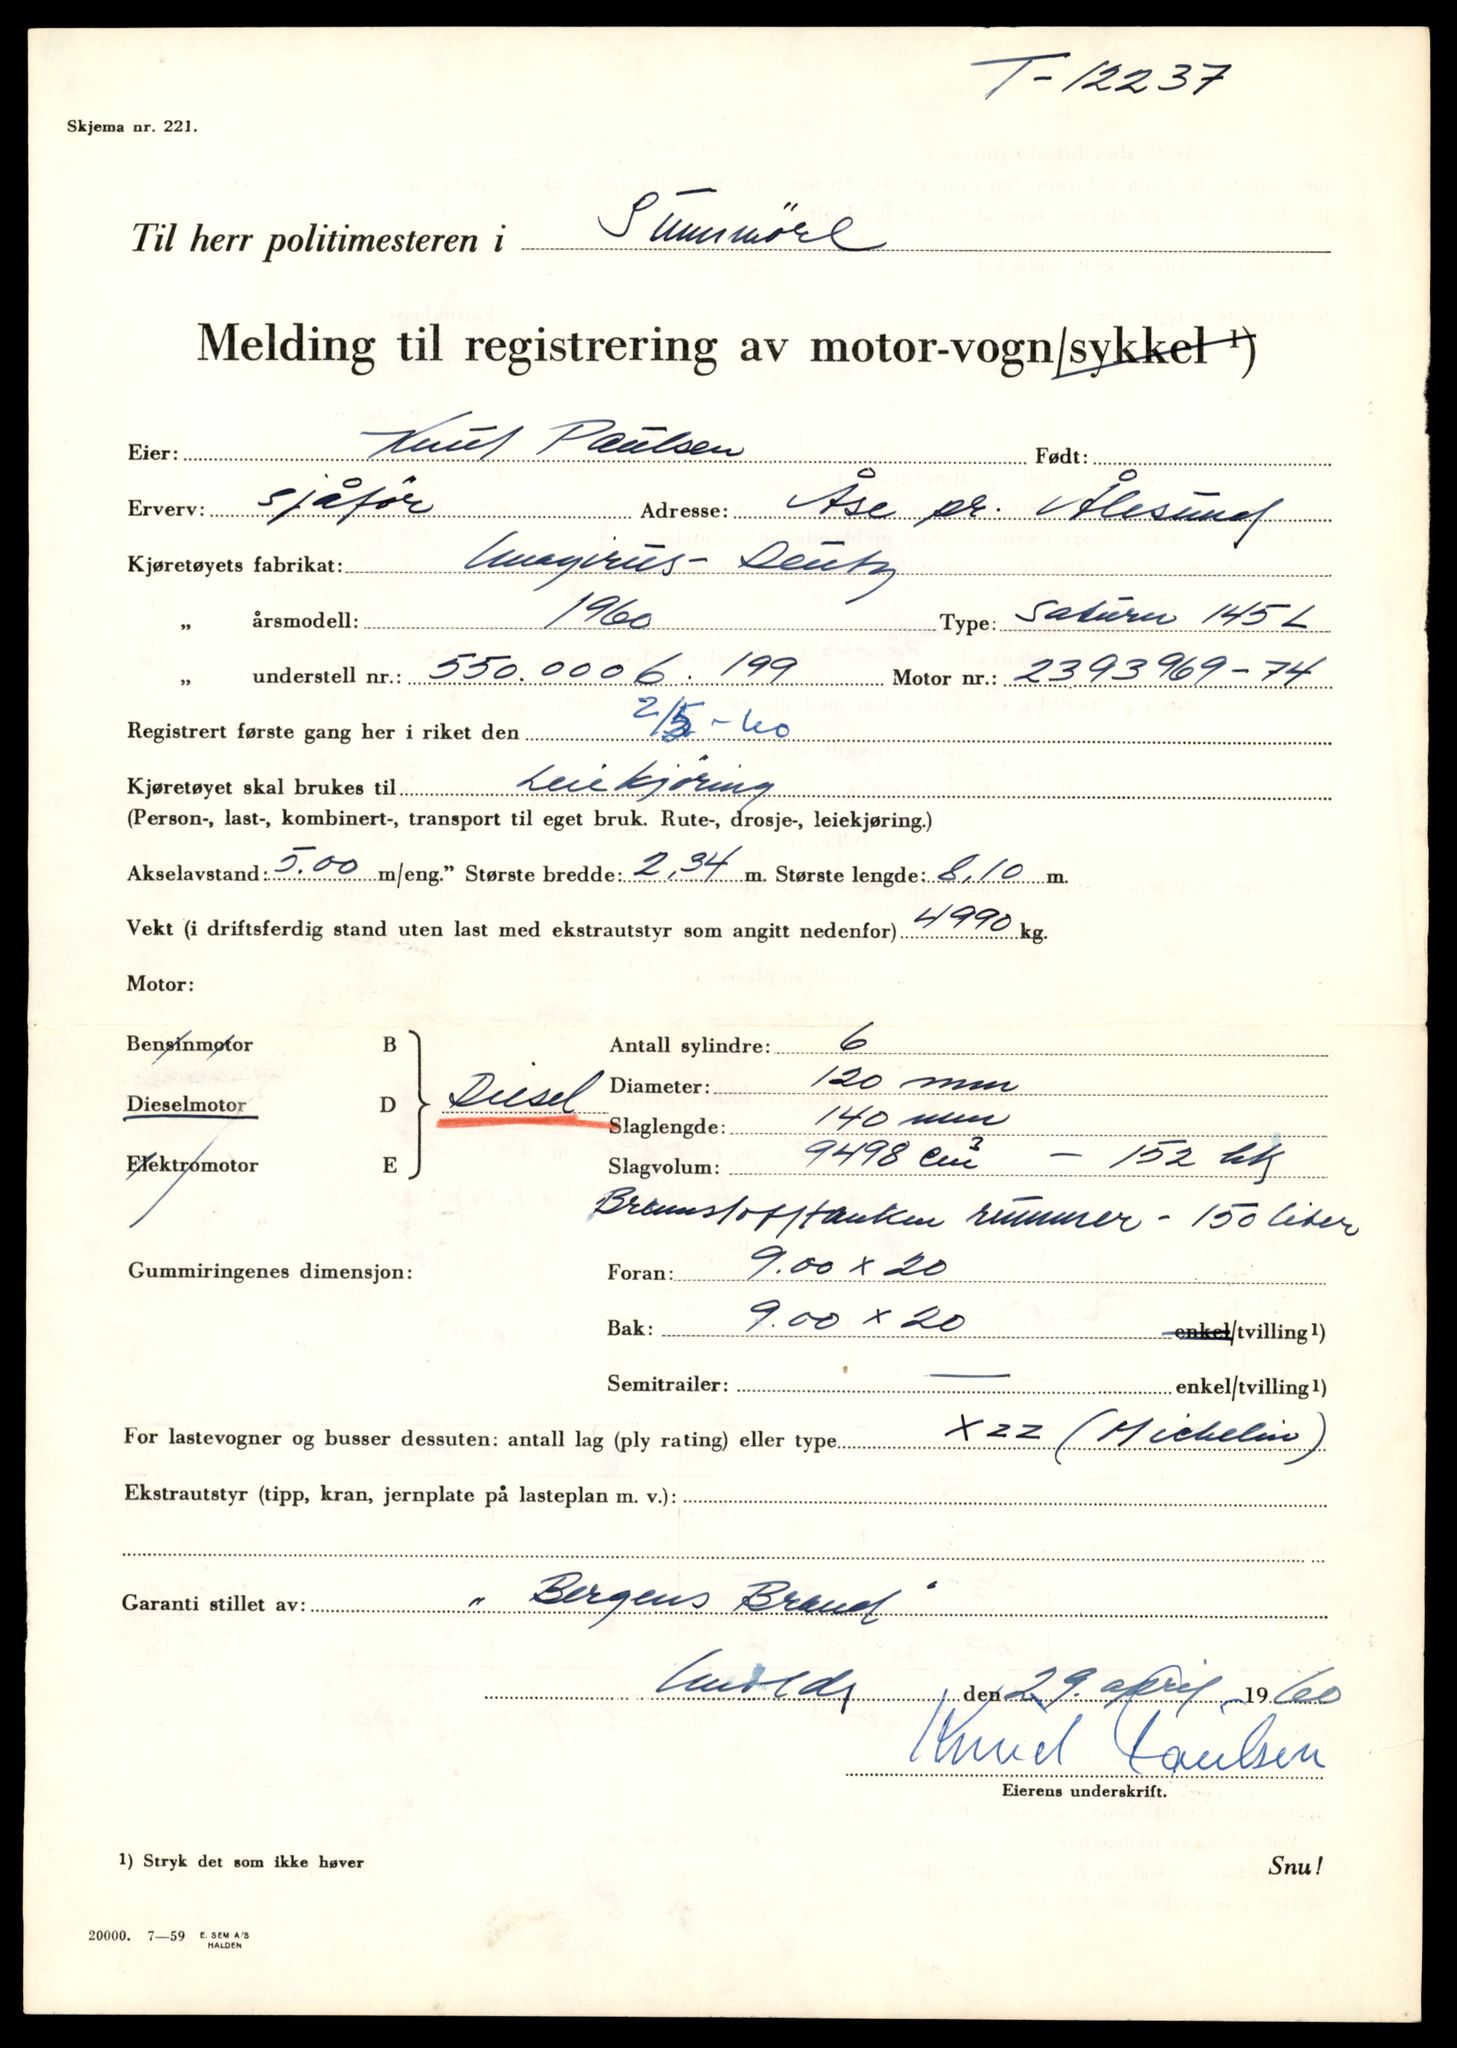 T-12237
Skjema nr. 221.
Til herr politimesteren i Sunnmöre
Melding til registrering av motor-vogn/sykkel 1)
Eier: Knut Paulsen Født:
Erverv: sjåför Adresse: Åse pr. Ålesund
Kjøretøyets fabrikat: Magirus-Deutz
„ årsmodell: 1960 Type: Saturn 145 L
„ understell nr.: 550.0006.199 Motor nr.: 2393969-74
Registrert første gang her i riket den 2/5-60
Kjøretøyet skal brukes til Leiekjöring
(Person-, last-, kombinert-, transport til eget bruk. Rute-, drosje-, leiekjøring.)
Akselavstand: 5.00 m/eng." Største bredde: 2,34 m. Største lengde: 8,10 m.
Vekt (i driftsferdig stand uten last med ekstrautstyr som angitt nedenfor) 4990 kg.
Motor:
Bensinmotor B Antall sylindre: 6
Diameter: 120 mm
Dieselmotor D Diesel
Slaglengde: 140 mm
Elektromotor E Slagvolum: 9498 cm³ - 152 hk
Brennstofftanken rummer - 150 liter
Gummiringenes dimensjon: Foran: 9.00 x 20
Bak: 9.00 x 20 enkel/tvilling 1)
Semitrailer: — enkel/tvilling 1)
For lastevogner og busser dessuten: antall lag (ply rating) eller type X zz (Michelin)
Ekstrautstyr (tipp, kran, jernplate på lasteplan m. v.):
Garanti stillet av: "Bergens Brand"
den 29. april 1960
Knud Paulsen
Eierens underskrift.
1) Stryk det som ikke høver
Snu!
20000. 7—59 E. SEM A/S
HALDEN